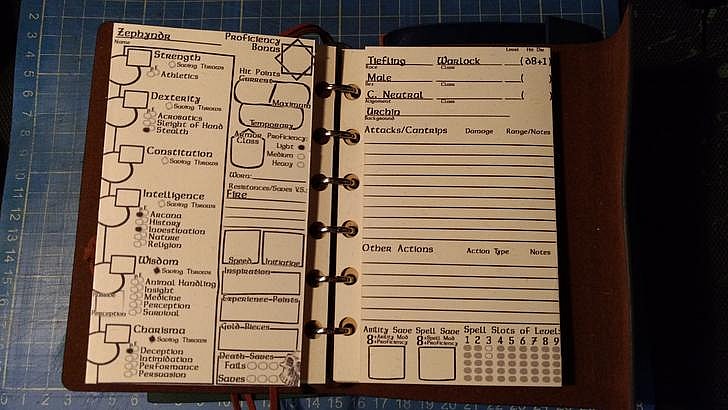 Zephyndr
Name
Proficiency
Bonus
Strength
Saving Throws
Athletics
Dexterity
Saving Throws
Acrobatics
Sleight of Hand
Stealth
Constitution
Saving Throws
Intelligence
Saving Throws
Arcana
History
Investigation
Nature
Religion
Wisdom
Saving Throws
Animal Handling
Insight
Medicine
Perception
Survival
Passive
Perception
Charisma
Saving Throws
Deception
Intimidation
Performance
Persuasion
Hit Points
Current
Maximum
Temporary
Armor
Class
Proficiency:
Light
Medium
Heavy
Worn:
Resistances/Saves V.S.:
Fire
Speed
Initiative
Inspiration
Experience-Points
Gold-Pieces
Death-Saves
Fails
Saves
Level Hit Die
Tiefling Warlock (d8+1)
Race Class
Male ( )
Sex Class
C. Neutral ( )
Alignment Class
Urchin
Background
Attacks/Cantrips Damage Range/Notes
Other Actions Action Type Notes
Ability Save Spell Save Spell Slots of Level:
8+Ability Mod 8+Spell Mod 1 2 3 4 5 6 7 8 9
+Proficiency +Proficiency
2 3 4 5 6 7 8 9 10 11 12 13
14 15 16 17 18 19